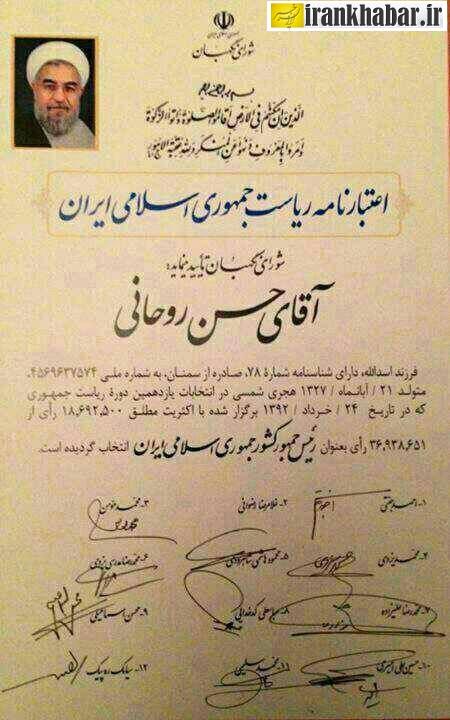 irankhabar.ir
شورای نگهبان
الذین ان مکنّهم فی الارض اقاموا الصلوة و اتوا الزکوة
و امروا بالمعروف و نهوا عن المنکر و لله عاقبة الامور
اعتبارنامه ریاست جمهوری اسلامی ایران
شورای نگهبان تأیید می‌نماید:
آقای حسن روحانی
فرزند اسدالله، دارای شناسنامه شمارهٔ ۷۸، صادره از سمنان، به شماره ملی ۴۵۶۹۶۳۷۵۷۴،
متولد ۲۱ / آبانماه / ۱۳۲۷ هجری شمسی در انتخابات یازدهمین دورهٔ ریاست جمهوری
که در تاریخ ۲۴ / خرداد / ۱۳۹۲ برگزار شده با اکثریت مطلق ۱۸,۶۹۲,۵۰۰ رأی از
۳۶,۹۳۸,۶۵۱ رأی بعنوان رئیس جمهور کشور جمهوری اسلامی ایران انتخاب گردیده است.
۱- احمد جنتی ۲- غلامرضا رضوانی ۳- محمد مؤمن
۴- محمد یزدی ۵- محمود هاشمی شاهرودی ۶- محمدرضا مدرسی یزدی
۷- محمدرضا علیزاده ۸- عباسعلی کدخدایی ۹- محسن اسماعیلی
۱۰- حسین علی امیری ۱۱- محمد سلیمی ۱۲- سیامک ره‌پیک